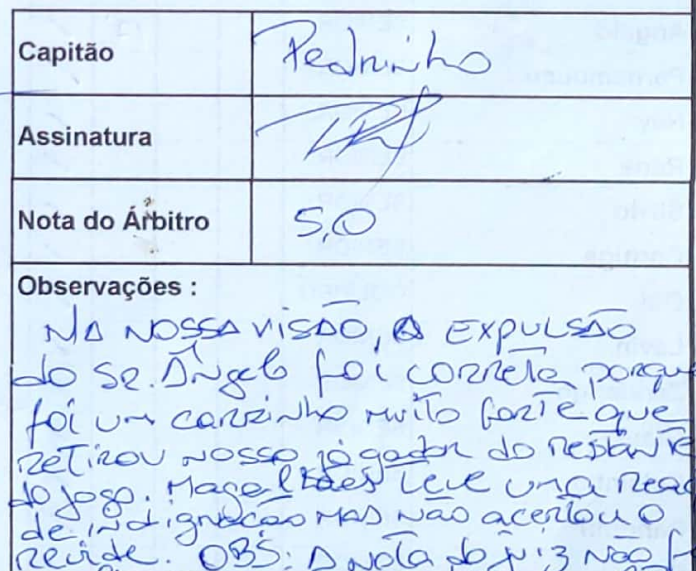 Capitão Pedrinho
Assinatura
Nota do Árbitro 5,0
Observações :
NA NOSSA VISÃO, A EXPULSÃO
do SR. Ângelo foi correta porque
foi um carrinho muito forte que
retirou nosso jogador do restante
do jogo. Magalhães teve uma reaç
de indignação MAS NÃO acertou o
revide. OBS: A NOTA do juiz NÃO